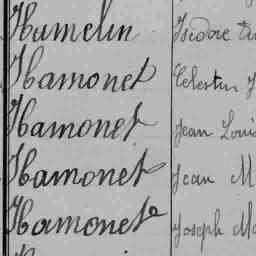 Hamelin Isidore
Hamonet Célestin
Hamonet Jean Louis
Hamonet Jean M
Hamonet Joseph Ma